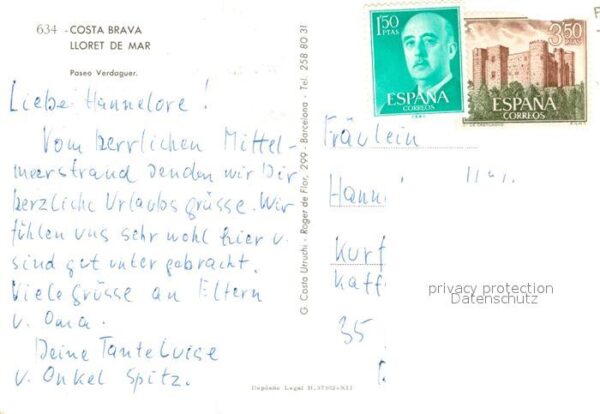 634 - COSTA BRAVA
LLORET DE MAR
Paseo Verdaguer.
Liebe Hannelore!
Vom herrlichen Mittel-
meerstrand senden wir Dir
herzliche Urlaubsgrüsse. Wir
fühlen uns sehr wohl hier u.
sind gut untergebracht.
Viele Grüsse an Eltern
u. Oma.
Deine Tante Luise
u. Onkel Spitz.
G. Costa Urruchi - Roger de Flor, 299 - Barcelona - Tel. 258 80 31
Depósito Legal B.
1'50
PTAS
ESPAÑA
CORREOS
3'50
PTAS
ESPAÑA
CORREOS
Fräulein
Hann
Kurf
Kaff
35
privacy protection
Datenschutz